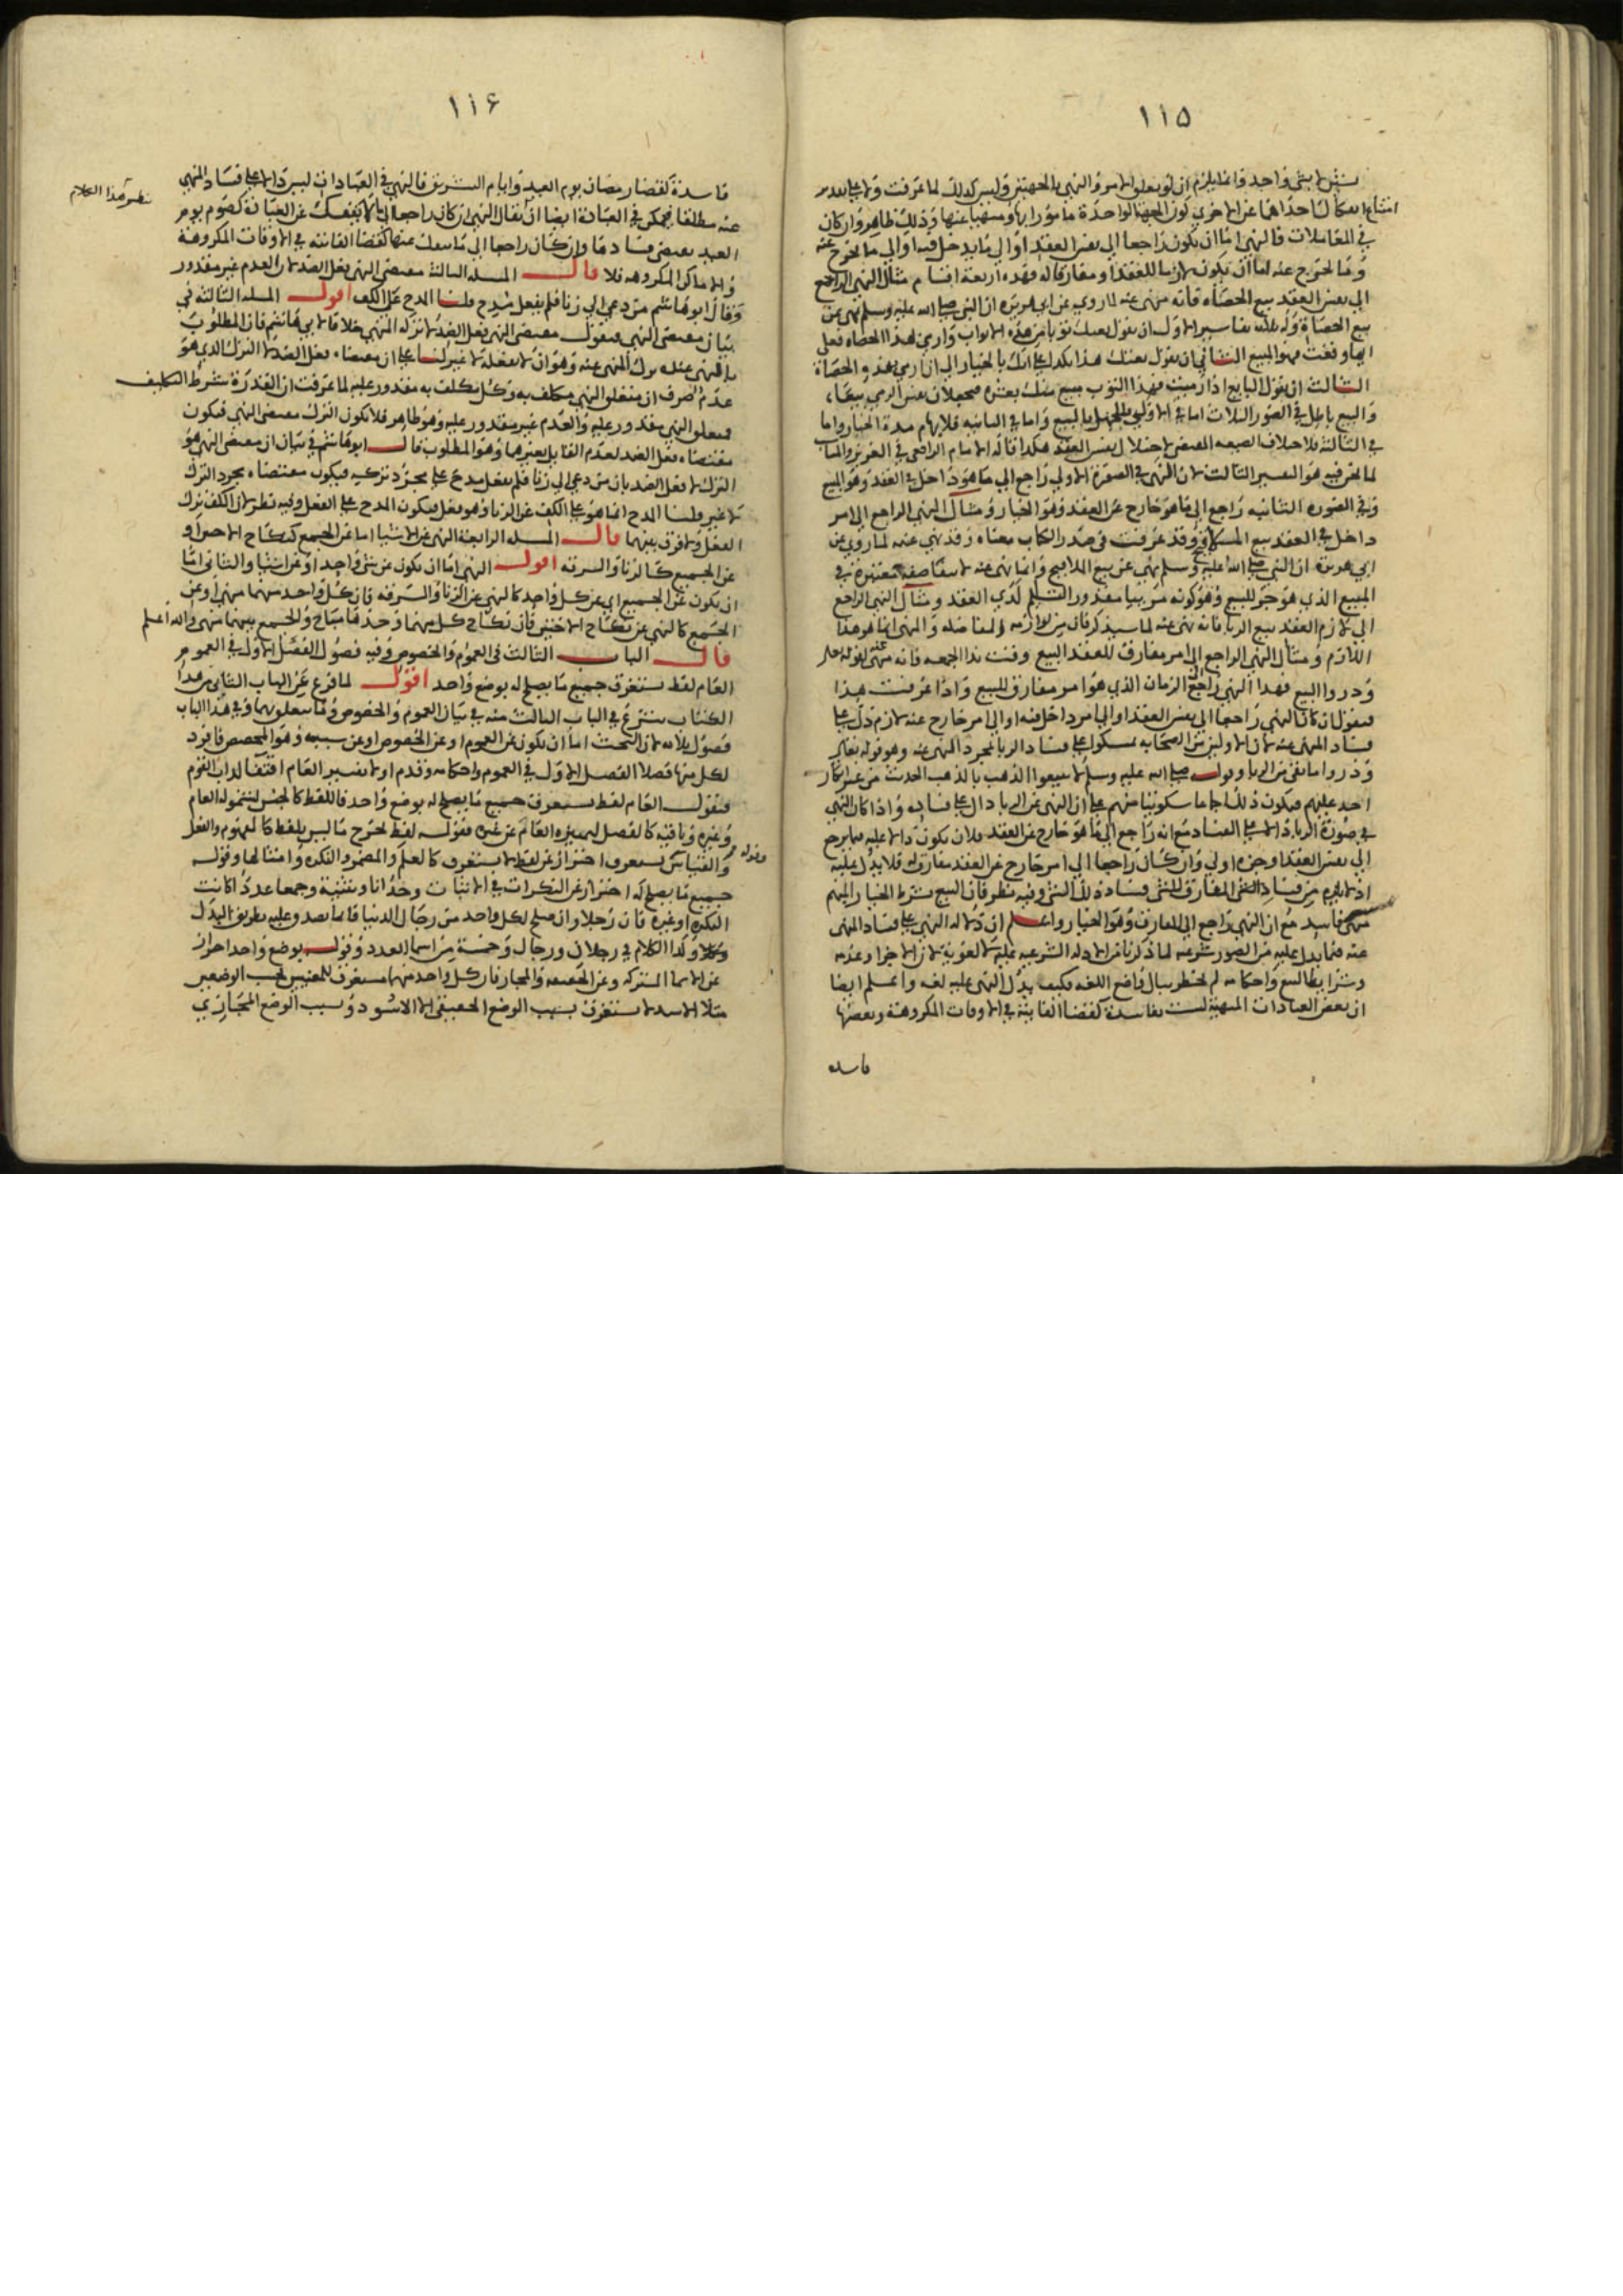 ١١٥
بشئ واحد وانما يلزم ان لو تعلق الامر والنهي بالجهتين وليس كذلك لما عرفت
في المعاملات فالنهي اما ان يكون راجعا الي نفس العقد او الي ما يدخل فيه او الي ما يخرج عنه
وما يخرج عنه اما ان يكون لازما للعقد او مفارقا له فهذه اربعة اقسام مثال النهي الراجع
الي نفس العقد بيع الحصاة فانه منهي عنه لما روي عن ابي هريرة ان النبي صلى الله عليه وسلم نهى عن
بيع الحصاة وله ثلاثة تفاسير الاول ان يقول بعتك ثوبا من هذه الاثواب وارمي بهذا الحصاة فعلى
ايها وقعت فهو المبيع الثاني ان يقول بعتك هذا بكذا على انك بالخيار الى ان ارمي بهذه الحصاة
الثالث ان يقول البايع اذا رميت فهذا الثوب مبيع منك بعشرة فيجعلان نفس الرمي بيعا
والبيع باطل في الصور الثلاث اما في الاولى فللجهل بالمبيع واما في الثانية فلابهام مدة الخيار واما
في الثالثة فلاختلاف الصيغة لاختلال نفس العقد هكذا قاله الامام الرافعي في
لما نحن فيه هو التفسير الثالث لان النهي في الصورة الاولى راجع الي ما هو داخل في العقد وهو المبيع
وفي الصورة الثانية راجع الي ما هو خارج عن العقد وهو الخيار ومثال النهي الراجع الي امر
داخل في العقد بيع الملاقيح وقد عرفت في صدر الكتاب معناه وقد نهي عنه لما روي عن
ابي هريرة ان النبي صلى الله عليه وسلم نهى عن بيع الملاقيح وانما نهى عنه لانتفا صفة معتبرة في
المبيع الذي هو جزء للبيع وهو كونه مرييا مقدور التسليم لدي العقد ومثال النهي الراجع
الي لازم العقد بيع الربا فانه نهى عنه لما سيذكر فان من لوازمه المفاضلة والنهي انما هو هذا
اللازم ومثال النهي الراجع الي امر مفارق للعقد البيع وقت ندا الجمعه فانه منهي عنه لقوله تعالى
وذروا البيع فهذا النهي راجع الي الزمان الذي هو امر مفارق للبيع واذا عرفت هذا
فنقول ان كان النهي راجعا الي نفس العقد او الي امر داخل فيه او الي امر خارج عنه لازم دل على
فساد المنهي عنه لان الاولين من الصحابة تمسكوا على فساد الربا بمجرد النهي عنه وهو قوله تعالى
وذروا ما بقي من الربا وقوله صلى الله عليه وسلم لا تبيعوا الذهب بالذهب الحديث من غير انكار
احد عليهم فيكون ذلك اجماعا سكوتيا منهم على ان النهي عن الربا دال على فساده واذا كان النهي
في صورة الربا دالا على الفساد مع انه راجع الي ما هو خارج عن العقد فلان يكون دالا عليه فيما يرجع
الي نفس العقد او جزه اولي وان كان راجعا الي امر خارج عن العقد مفارق له فلا يدل عليه
اذ لا يلزم من فساد الشي المفارق للشي فساد ذلك الشي وفيه نظر فان البيع بشرط الخيار المبهم
فاسد مع ان النهي راجع الي المفارق وهو الخيار واعلم ان دلالة النهي على فساد المنهي
عنه فيما يدل عليه من الصور شرعية لما ذكرنا من الادلة الشرعية عليه لا لغوية لان الاجزا وعدمه
وشرايط البيع واحكامه لم تخطر ببال واضع اللغه فكيف يدل النهي عليه لغه واعلم ايضا
ان بعض العبادات المنهية ليست بفاسدة كقضا الفايتة في الاوقات المكروهة وبعضها
فاسده
١١٦
فاسدة كقضا رمضان يوم العيد وايام التشريق فالنهي في العبادات ليس دالا على فساد المنهي
عنه مطلقا فيمكن في العبادة ايضا ان يقال النهي ان كان راجعا الي ما لا ينفك عن العبادة كصوم يوم
العيد يقتضي فسادها وان كان راجعا الي ما ينفك عنها كقضا الفائتة في الاوقات المكروهة
والاماكن المكروهه فلا قال المسله الثالثة مقتضي النهي فعل الضد لان العدم غير مقدور
وقال ابو هاشم من دعي الي زنا فلم يفعل مدح قلنا المدح على الكف اقول المسله الثالثة في
بيان مقتضي النهي فنقول مقتضي النهي فعل الضد لا ترك المنهي خلافا لابي هاشم فان المطلوب
بالنهي عنده ترك المنهي عنه وهو ان لا يفعله لا غير لنا على ان مقتضاه فعل الضد لا الترك الذي هو
عدم صرف ان متعلق النهي مكلف به وكل مكلف به مقدور عليه لما عرفت ان القدرة شرط التكليف
فمتعلق النهي مقدور عليه والعدم غير مقدور عليه وهو ظاهر فلا يكون الترك مقتضي النهي فيكون
مقتضاه فعل الضد لعدم القايل بغيرهما وهو المطلوب قال ابو هاشم في بيان ان مقتضي النهي هو
الترك لا فعل الضد بان من دعي الي زنا فلم يفعل مدح على مجرد تركه فيكون مقتضاه مجرد الترك
لا غير قلنا المدح انما هو على الكف عن الزنا وهو فعل فيكون المدح على الفعل وفيه نظر لان الكف ترك
الفعل ولا فرق بينهما قال المسله الرابعة النهي عن الاشيا اما عن الجمع كنكاح الاختين او
عن الجميع كالزنا والسرقه اقول النهي اما ان يكون عن شي واحد او عن اشيا والثاني اما
ان يكون عن الجميع اي عن كل واحد كالنهي عن الزنا والسرقه فان كل واحد منهما منهي او عن
الجمع كالنهي عن نكاح الاختين فان نكاح كل منهما وحدها مباح والجمع بينهما منهي والله اعلم
قال الباب الثالث في العموم والخصوص وفيه فصول الفصل الاول في العموم
العام لفظ يستغرق جميع ما يصلح له بوضع واحد اقول لما فرغ عن الباب الثاني من هذا
الكتاب شرع في الباب الثالث منه في بيان العموم والخصوص وما يتعلق بهما وفي هذا الباب
فصول ثلاثه لان البحث اما ان يكون عن العموم او عن الخصوص او عن سببه وهو المخصص فافرد
لكل منها فصلا الفصل الاول في العموم واحكامه وقدم اولا تفسير العام اقتفا لداب القوم
فنقول العام لفظ يستغرق جميع ما يصلح له بوضع واحد فاللفظ كالجنس لشموله العام
وغيره وباقيه كالفصل ليميزه العام عن غيره فقوله لفظ يخرج ما ليس بلفظ كالمفهوم والفعل
والقياس وقوله يستغرق احتراز عن لفظ لا يستغرق كالعلم والمضمر والنكره وامثالها وقوله
جميع ما يصلح له احتراز عن النكرات في الاثبات وحدانا وتثنية وجمعا عددا كانت
النكره او غيره فان رجلا وان صلح لكل واحد من رجال الدنيا فانما يصدق عليه بطريق البدل
وكذا الكلام في رجلان ورجال وخمسة من اسما العدد وقوله بوضع واحد احتراز
عن الاسما المشتركه وعن الحقيقه والمجاز فان كل واحد منهما مستغرق للمعنيين بحسب الوضعين
مثلا الاسد لا يستغرق بسبب الوضع الحقيقي الا الاسود وبسبب الوضع المجازي